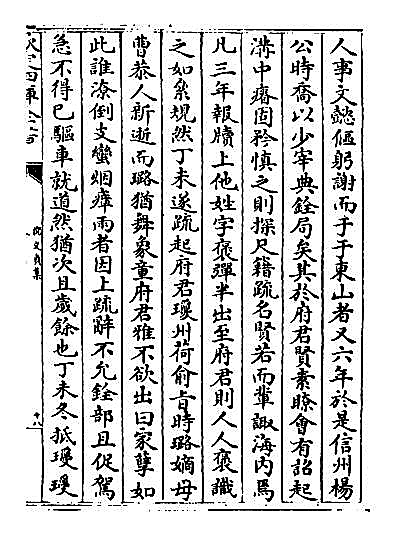 人事文懿傴躬謝而于于東山者又六年於是信州楊
公時喬以少宰典銓局矣其於府君賢素瞭會有詔起
溝中瘠固矜慎之則探尺籍疏名賢若而輩諏海內焉
凡三年報牘上他姓字褒彈半出至府君則人人褒識
之如矣規然丁未遂疏起府君瓊州荷俞㫖時璐嫡母
曹恭人新逝而璐猶舞象童府君雅不欲出曰家孽如
此誰潦倒支蠻烟瘴雨者因上疏辭不允銓部且促駕
急不得已驅車就道然猶次且歲餘也丁未冬抵瓊瓊
欽定四庫全書
倪文貞集
十八